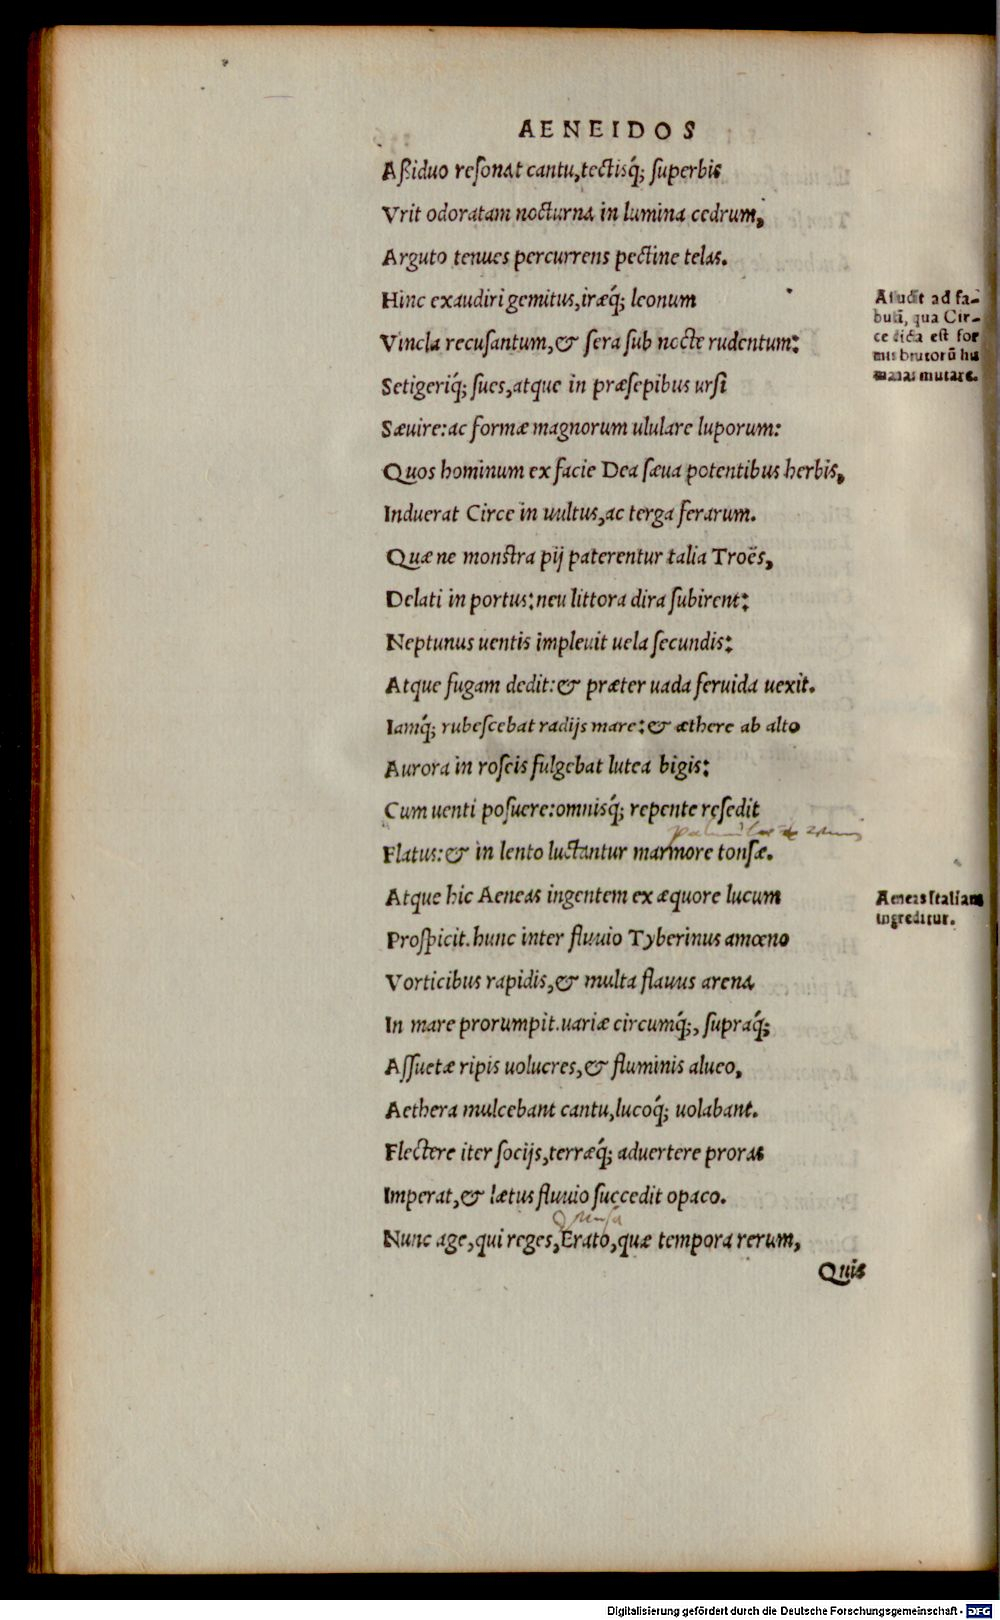 AENEIDOS
Aßiduo reſonat cantu,tectisq́; ſuperbis
Vrit odoratam nocturna in lumina cedrum,
Arguto tenues percurrens pectine telas.
Hinc exaudiri gemitus,iræq́; leonum
Vincla recuſantum,& ſera ſub nocte rudentum:
Setigeriq́; ſues,atque in præſepibus urſi
Sæuire:ac formæ magnorum ululare luporum:
Quos hominum ex facie Dea ſæua potentibus herbis,
Induerat Circe in uultus,ac terga ferarum.
Quæ ne monſtra pij paterentur talia Troës,
Delati in portus:neu littora dira ſubirent:
Neptunus uentis impleuit uela ſecundis:
Atque fugam dedit:& præter uada feruida uexit.
Iamq́; rubeſcebat radijs mare:& æthere ab alto
Aurora in roſeis fulgebat lutea bigis:
Cum uenti poſuere:omnisq́; repente reſedit
Flatus:& in lento luctantur marmore tonſæ.
Atque hic Aeneas ingentem ex æquore lucum
Proſpicit.hunc inter fluuio Tyberinus amœno
Vorticibus rapidis,& multa flauus arena
In mare prorumpit.uariæ circumq́;, ſupraq́;
Aſſuetæ ripis uolucres,& fluminis alueo,
Aethera mulcebant cantu,lucoq́; uolabant.
Flectere iter ſocijs,terræq́; aduertere proras
Imperat,& lætus fluuio ſuccedit opaco.
Muſa
Nunc age,qui reges,Erato,quæ tempora rerum,
Quis
Aludit ad fa-
bulā, qua Cir-
ce dicta est for
mas brutorū hu
manas mutare.
Aeneas Italiam
ingreditur.
Digitalisierung gefördert durch die Deutsche Forschungsgemeinschaft - DFG